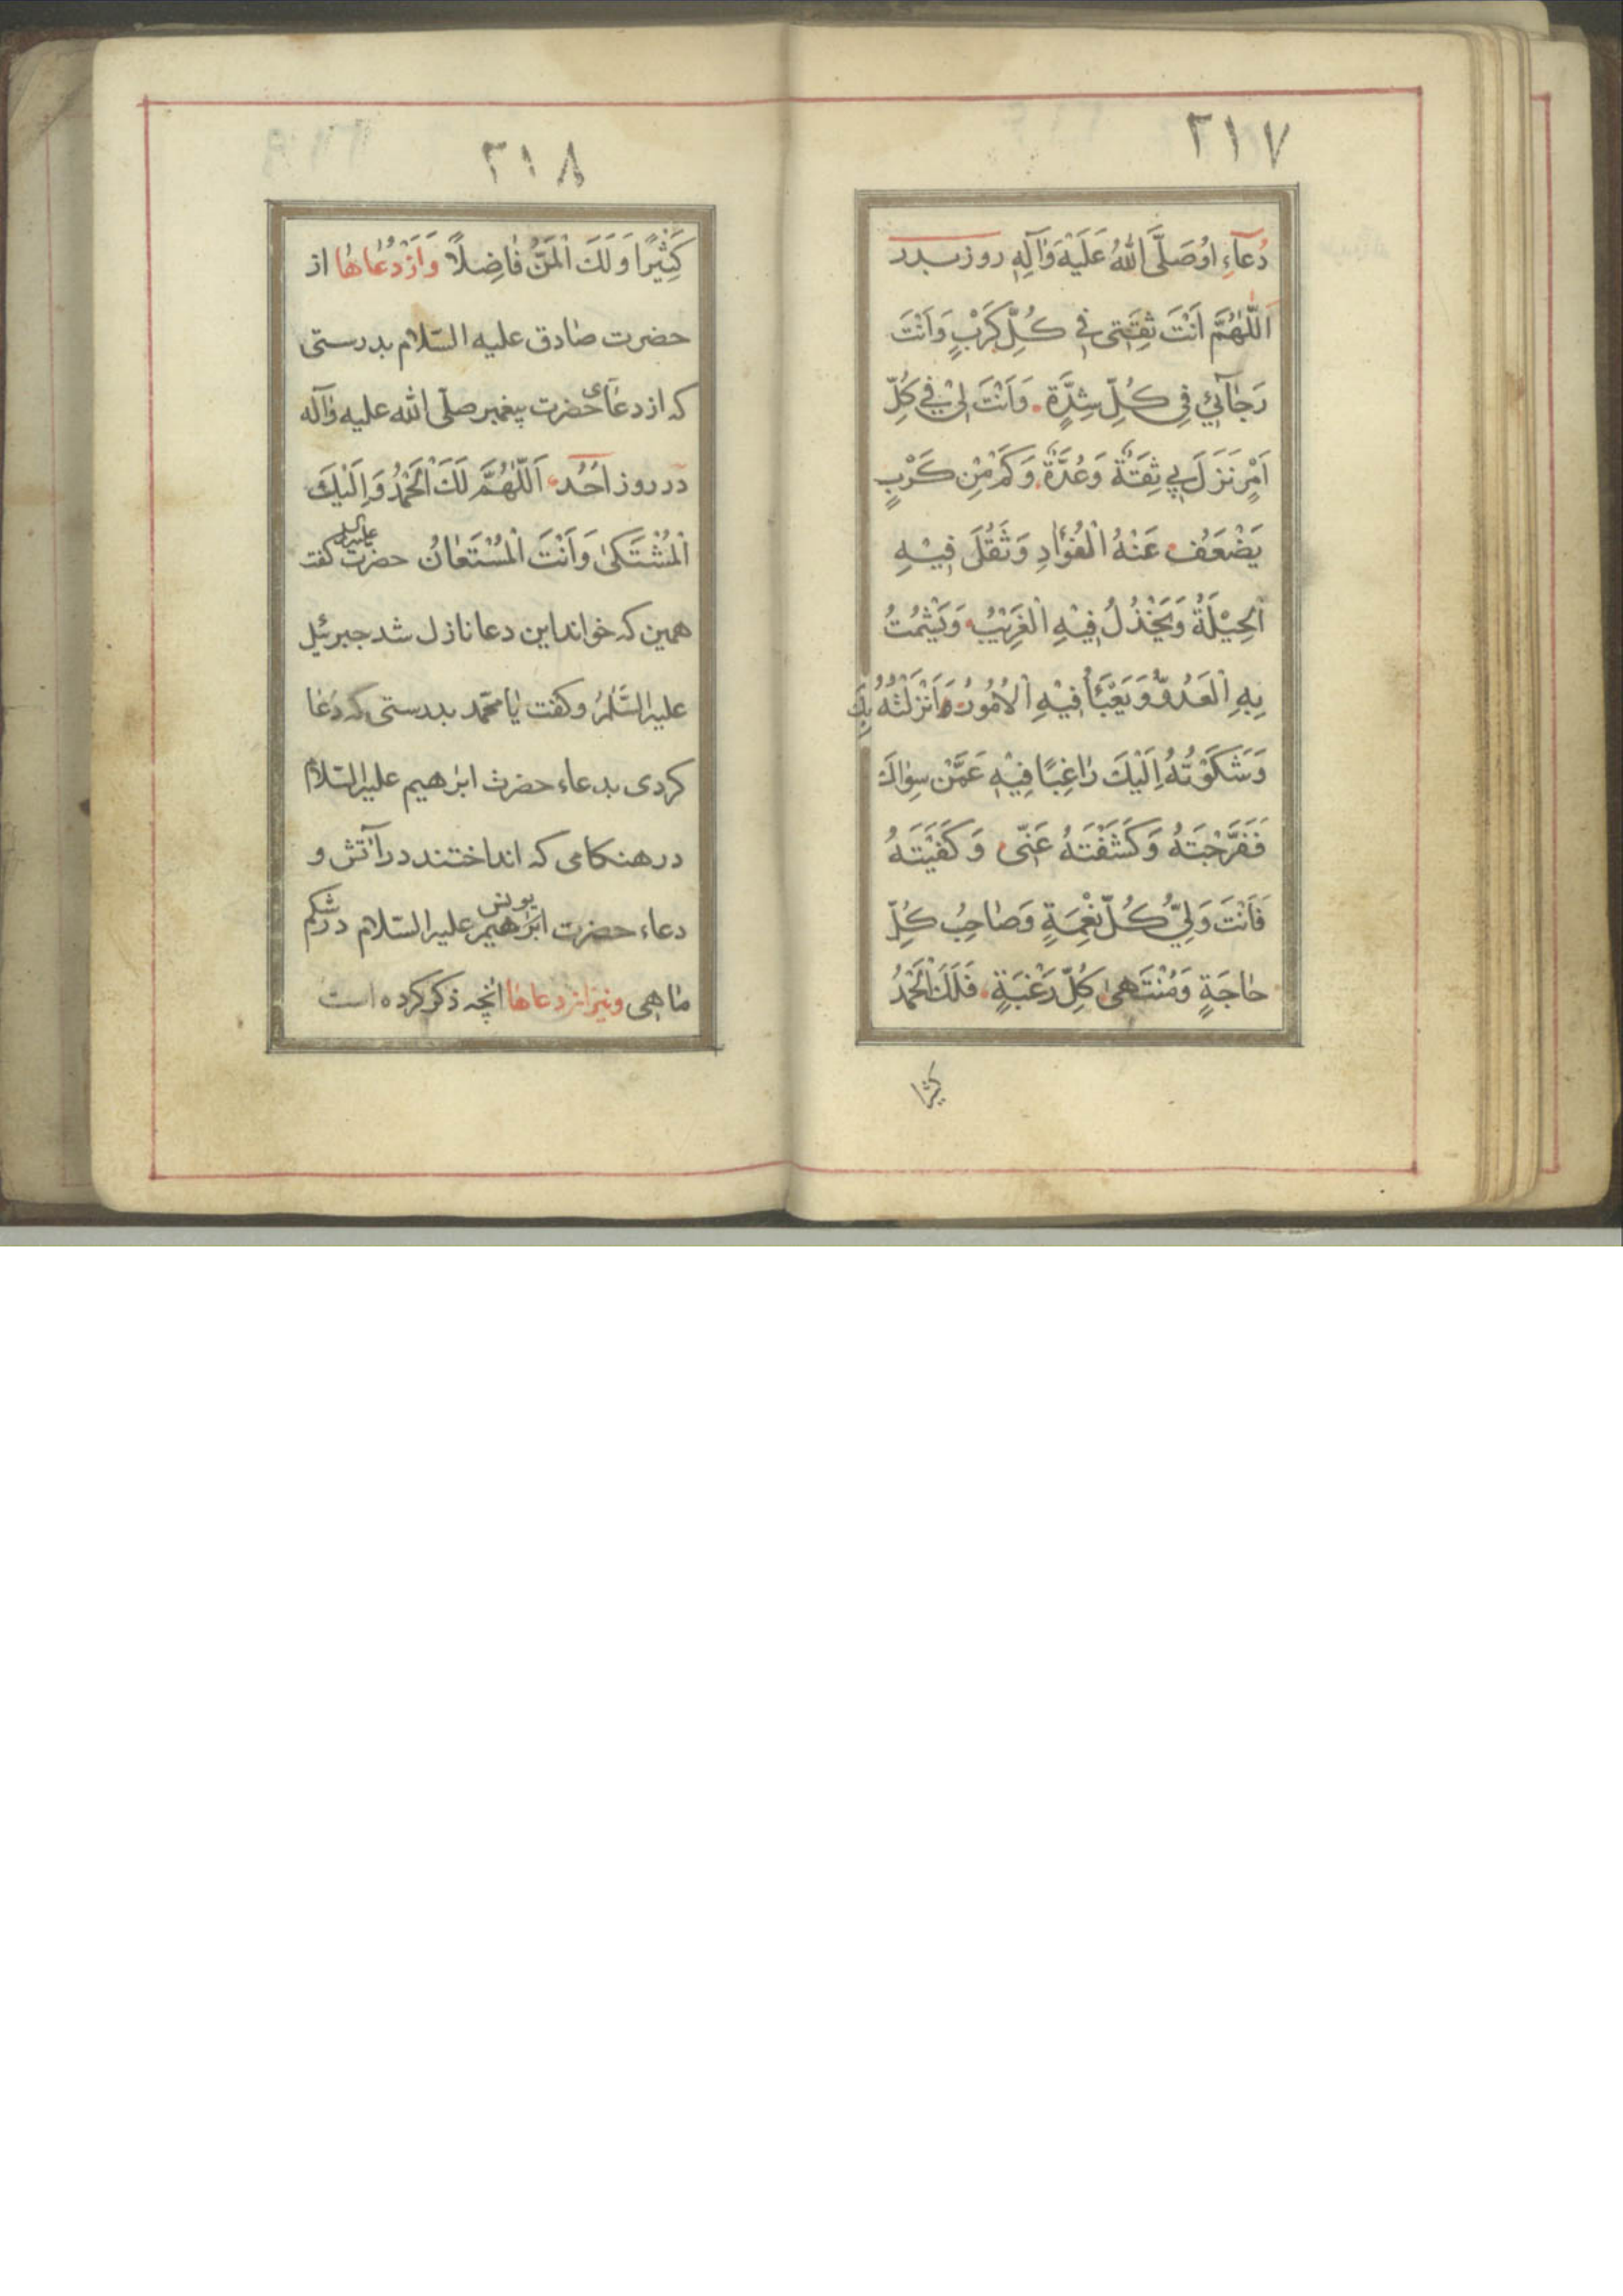 ۲۱۷
دُعآءِ اوُصَلَّی اللهُ عَلَیْهَ وَاٰلِهِ روز بدر
اَللّٰهُمَّ اَنْتَ ثِقَتِی فِی کُلِّ کَرْبٍ وَاَنْتَ
رَجٰآئِیْ فِی کُلِّ شِدَّةٍ وَاَنْتَ لِیْ فِی کُلِّ
اَمْرٍ نَزَلَ بِی ثِقَةٌ وَعُدَّةٌ وَکَمْ مِنْ کَرْبٍ
یَضْعَفُ عَنْهُ الْفُؤٰادِ وَثَقُلَ فِیْهِ
الْحِیْلَةُ وَیَخْذُلُ فِیْهِ الْغَرِیْبُ وَیَشْمُتُ
بِهِ الْعَدُوُّ وَیَعْبَأُ فِیْهِ الْاُمُوُرُ وَاَنْزَلْتُهُ بِكَ
وَشَکَوْتُهُ اِلَیْكَ رٰاغِبًا فِیْهِ عَمَّنْ سِوٰاكَ
فَفَرَّجْتَهُ وَکَشَفْتَهُ عَنّی وَکَفَیْتَهُ
فَاَنْتَ وَلِیُّ کُلِّ نِعْمَةٍ وَصٰاحِبُ کُلِّ
حٰاجَةٍ وَمُنْتَهیٰ کُلِّ رَغْبَةٍ فَلَكَ الْحَمْدُ
کثیرا
۲۱۸
کَثِیْرًا وَلَكَ الْمَنُّ فٰاضِلاً وَاَزْدُعٰاهٰا از
حضرت صٰادق علیه السّلام بدرستی
که از دعٰآی حضرت پیغمبر صلّی الله علیه وٰآله
در روز اُحُد اَللّٰهُمَّ لَكَ الْحَمْدُ وَاِلَیْكَ
الْمُشْتَکیٰ وَاَنْتَ الْمُسْتَعٰانُ حضرت علیه السلام کفت
همین که خواند این دعا نازل شد جبرئیل
علیه السَّلٰمُ وکفت یٰا محمّد بدرستی که دعٰا
کردی بدعاء حضرت ابرٰهیم علیه السّلام
در هنکامی که انداختند در آتش و
دعاء حضرت ابرٰهیم یونس علیه السّلام در شکم
مٰاهی ونیز از دعاهٰا آنچه ذکر کرده است